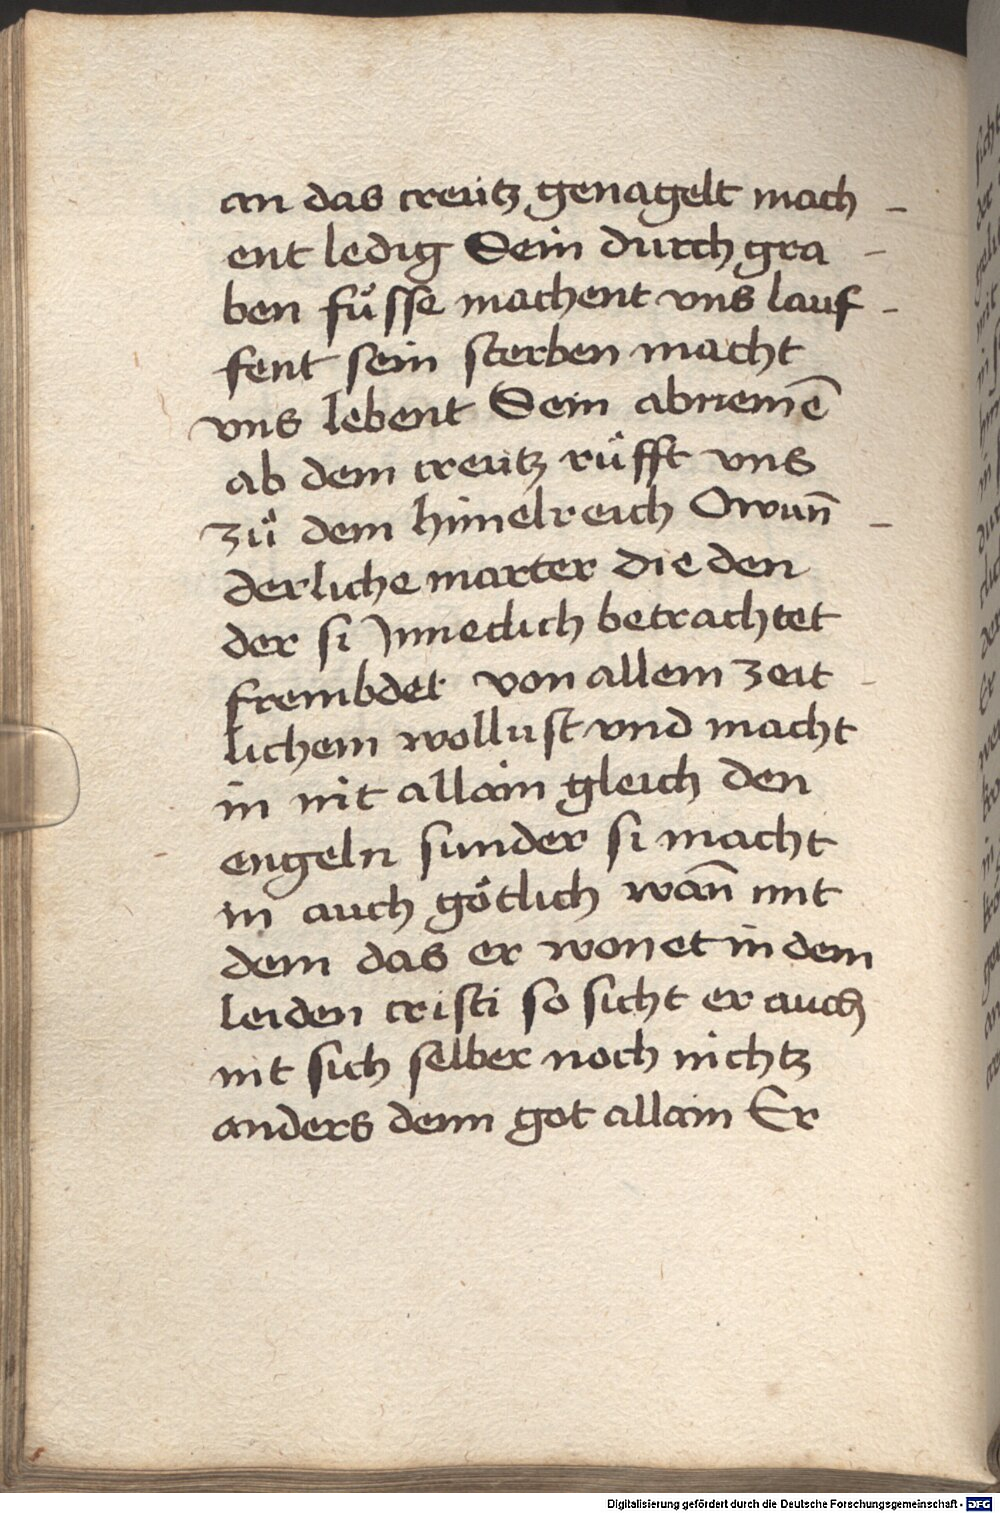 an das creutz genagelt mach -
ent ledig Sein durch gra -
ben fuͦsse machent vns lauf -
fent sein sterben macht
vns lebent Sein abnemē
ab dem creutz ruͦfft vns
zuͦ dem himelreich O wun̄ -
derliche marter die den
der si Jnneclich betrachtet
frembdet von allem zeit -
lichem wollust vnd macht
in nit allain gleich den
engeln sunder si macht
in auch goͤtlich wan̄ mit
dem das er wonet in dem
leiden cristi so sicht er auch
nit sich selber noch nichtz
anders denn got allain Er
Digitalisierung gefördert durch die Deutsche Forschungsgemeinschaft - DFG